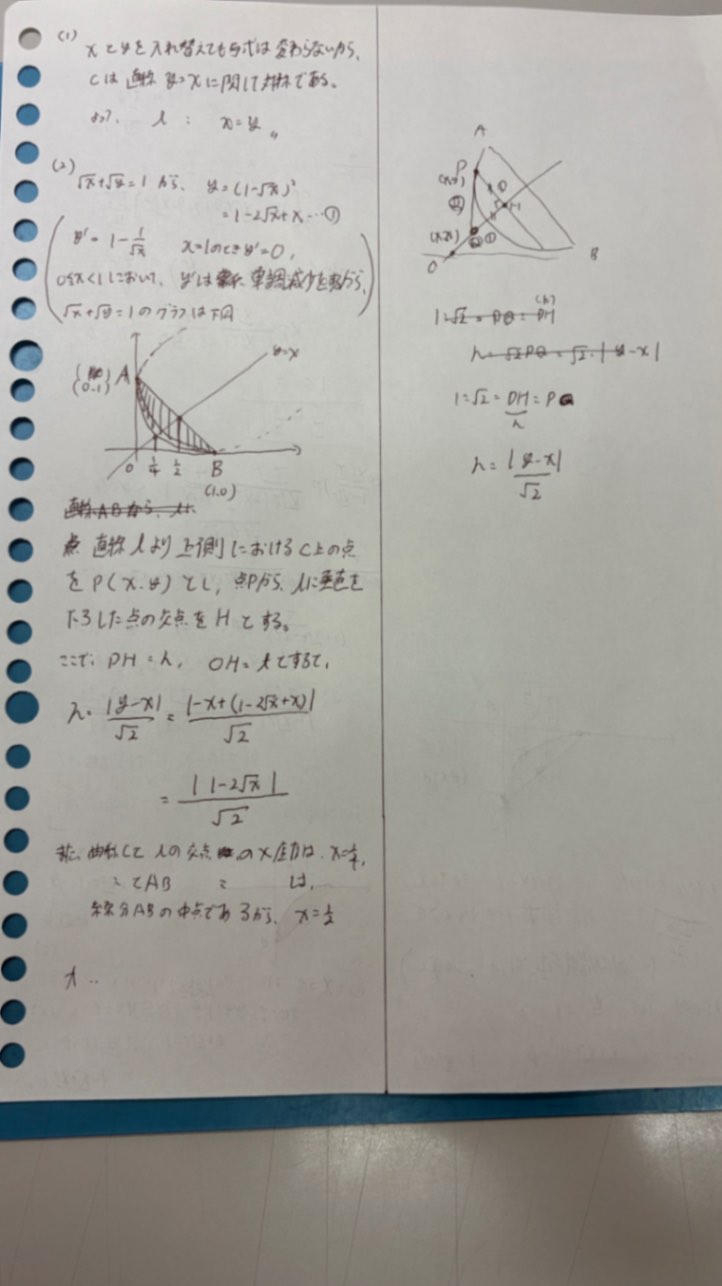 (1)
xとyを入れ替えても与式は変わらないから、
Cは直線y=xに関して対称である。
よって、 l : x=y 〃
(2)
√x+√y=1 から、 y=(1-√x)²
=1-2√x+x…①
y'=1-1/√x x=1のときy'=0,
0≦x<1において、y'は単調減少を表から、
√x+√y=1のグラフは下図
(0.1) A
y=x
0 1/4 1/2 B
(1.0)
直線ABから、lは
点 直線lより上側におけるC上の点
をP(x.y)とし、点Pから、lに垂直を
下ろした点の交点をHとする。
ここで、PH=h, OH=tとすると、
h=|y-x|/√2=|-x+(1-2√x+x)|/√2
=|1-2√x|/√2
また、曲線Cとlの交点のx座標は、x=1/4,
〃とAB 〃 は、
線分ABの中点であるから、x=1/2
t‥
A
P
(x.y)
√2
H
(x.x)
①
B
O
(h)
1:√2=PQ=PH
h=√2PQ=√2·|y-x|
1:√2=PH=PQ
h
h=|y-x|/√2